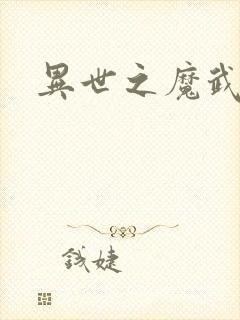 異世之魔武
钱婕